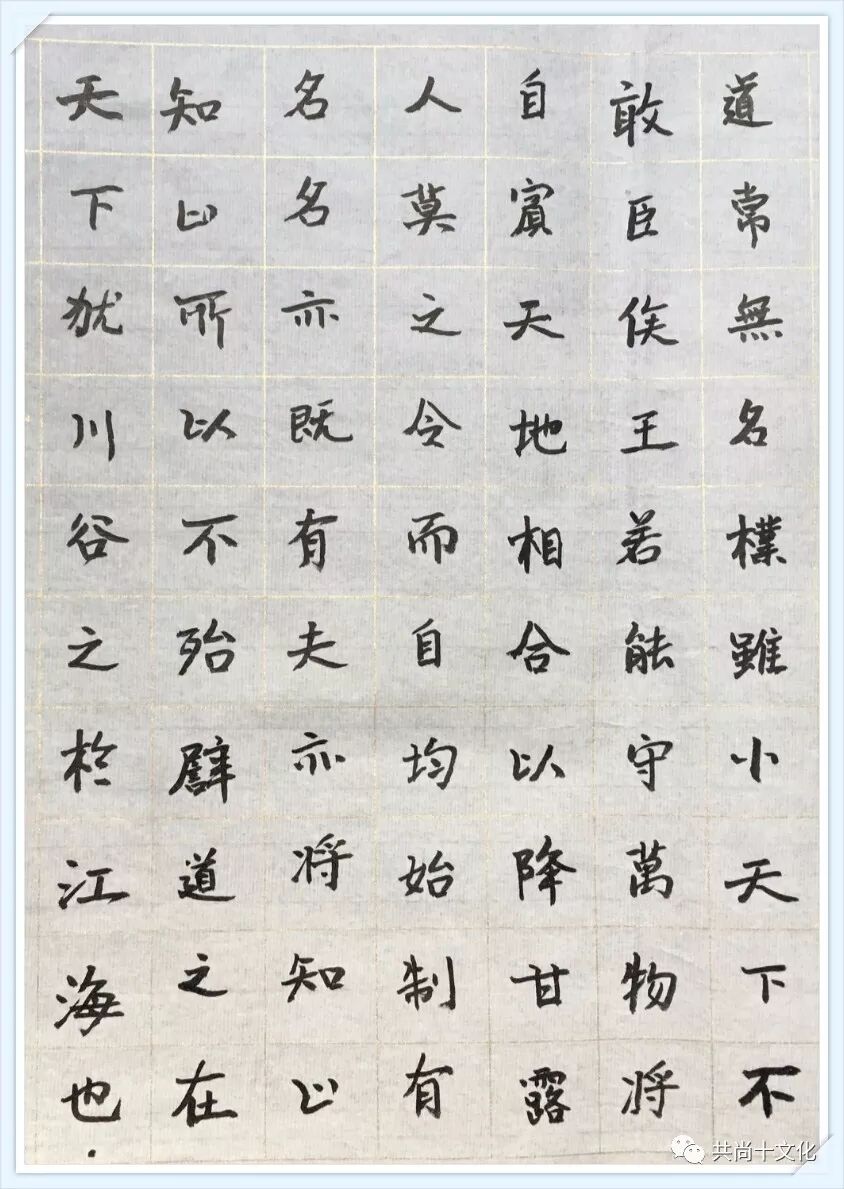 道常無名樸雖小天下不
敢臣侯王若能守萬物將
自賓天地相合以降甘露
人莫之令而自均始制有
名名亦既有夫亦將知止
知止所以不殆譬道之在
天下猶川谷之於江海也.
共尚十文化